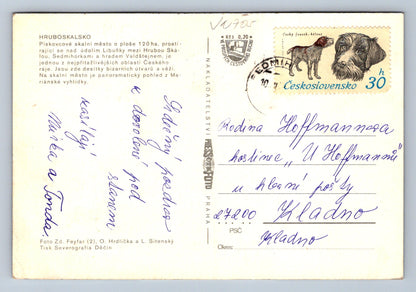 HRUBOSKALSKO
Pískovcové skalní město o ploše 120 ha, prostí-
rající se nad údolím Libuňky mezi Hrubou Ska-
lou, Sedmihorkami a hradem Valdštejnem, je
jednou z nejpřitažlivějších oblastí Českého
ráje. Jsou zde desítky bizarních útvarů a věží.
Na skalní město je panoramatický pohled z Ma-
riánské vyhlídky.
Srdečný pozdrav
z dovolené pod
stanem
zasílají
Milka a Tonda.
Foto Zd. Feyfar (2), O. Hrdlička a L. Sitenský
Tisk Severografia Děčín
NAKLADATELSTVÍ
PRESSFOTO
PRAHA
Kčs 0,30
český fousek-hlídač
Československo 30 h
Rodina Hoffmannova
hostinec "U Hoffmannů"
u hlavní pošty
27200 Kladno
PSČ
Kladno
Okres: